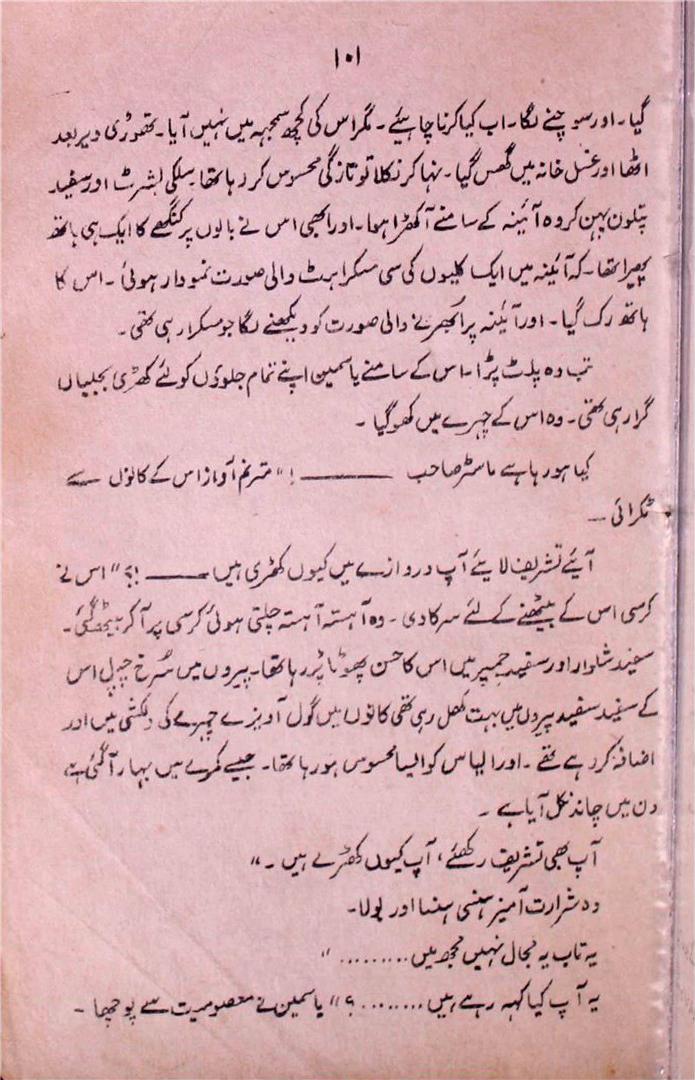 ۱۰۱
گیا۔ اور سوچنے لگا۔ اب کیا کرنا چاہیئے۔ مگر اس کی کچھ سمجھ میں نہیں آیا۔ تھوڑی دیر بعد
اٹھا اور غسل خانہ میں گھس گیا۔ نہا کر نکلا تو تازگی محسوس کر رہا تھا۔ سلکی بشرٹ اور سفید
پتلون پہن کر وہ آئینہ کے سامنے آکھڑا ہوا۔ اور ابھی اس نے بالوں پر کنگھے کا ایک ہی ہاتھ
پھیرا تھا۔ کہ آئینہ میں ایک کلیوں کی سی مسکراہٹ والی صورت نمودار ہوئی۔ اس کا
ہاتھ رک گیا۔ اور آئینہ پر ابھرنے والی صورت کو دیکھنے لگا جو مسکرا رہی تھی۔
تب وہ پلٹ پڑا۔ اس کے سامنے یاسمین اپنے تمام جلوؤں کو لئے کھڑی بجلیاں
گرا رہی تھی۔ وہ اس کے چہرے میں کھو گیا۔
کیا ہو رہا ہے ماسٹر صاحب ــــــــــ !" مترنم آواز اس کے کانوں سے
ٹکرائی ــ
آیئے تشریف لایئے آپ دروازے میں کیوں کھڑی ہیں ــــــــ !؟" اس نے
کرسی اس کے بیٹھنے کے لئے سرکا دی۔ وہ آہستہ آہستہ چلتی ہوئی کرسی پر آکر بیٹھ گئی۔
سفید شلوار اور سفید جمپر میں اس کا حسن پھوٹا پڑ رہا تھا۔ پیروں میں سُرخ چپل اس
کے سفید سفید پیروں میں بہت کھل رہی تھی کانوں میں گول آویزے چہرے کی دلکشی میں اور
اضافہ کر رہے تھے۔ اور الیاس کو ایسا محسوس ہو رہا تھا۔ جیسے کمرے میں بہار آگئی ہے
دن میں چاند نکل آیا ہے۔
آپ بھی تشریف رکھئے، آپ کیوں کھڑے ہیں۔"
وہ شرارت آمیز ہنسی ہنسا اور بولا۔
یہ تاب یہ مجال نہیں مجھ میں ........."
یہ آپ کیا کہہ رہے ہیں ........؟" یاسمین نے معصومیت سے پوچھا۔